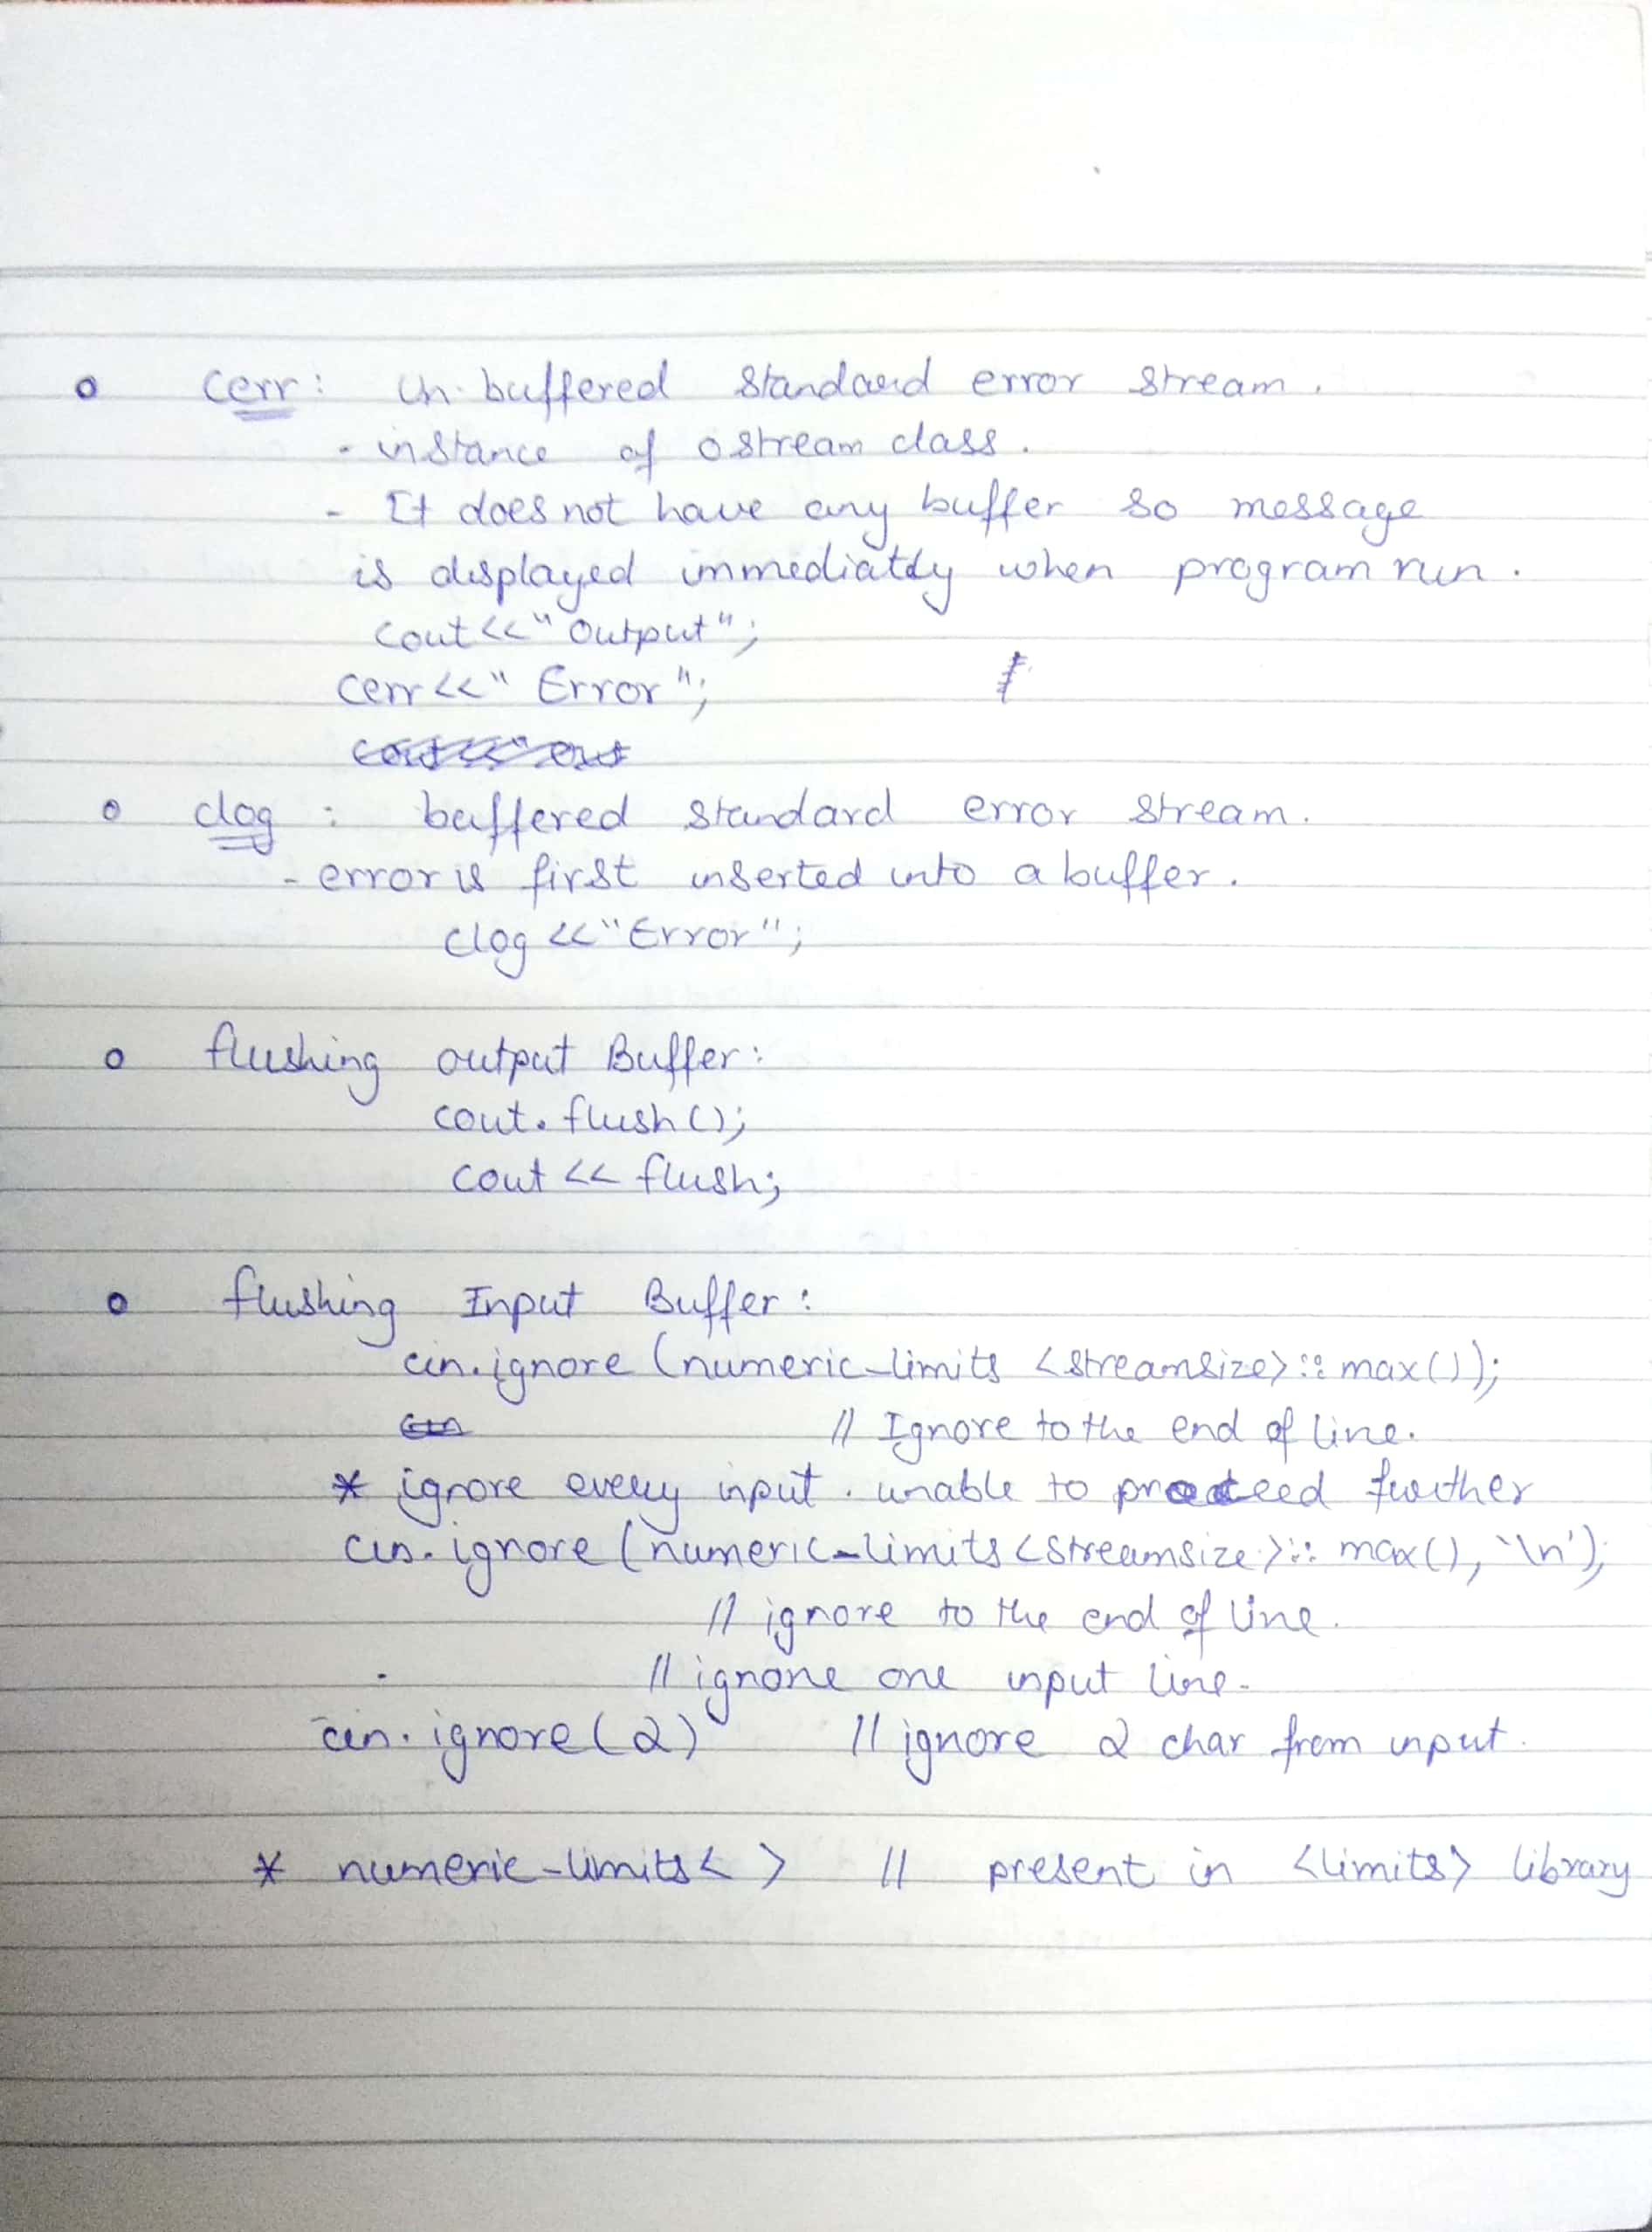 o cerr: Un-buffered standard error stream.
- instance of ostream class.
- It does not have any buffer so message
is displayed immediatly when program run.
cout<<"Output";
cerr<<" Error";
o clog : buffered standard error stream.
- error is first inserted into a buffer.
clog <<"Error";
o flushing output Buffer:
cout. flush();
cout << flush;
o flushing Input Buffer:
cin.ignore (numeric_limits <streamsize>:: max());
// Ignore to the end of line.
* ignore every input. unable to proceed further
cin. ignore (numeric_limits<streamsize>:: max(), '\n');
// ignore to the end of line.
// ignore one input line.
cin. ignore(2) // ignore 2 char from input.
* numeric_limits< > // present in <limits> library